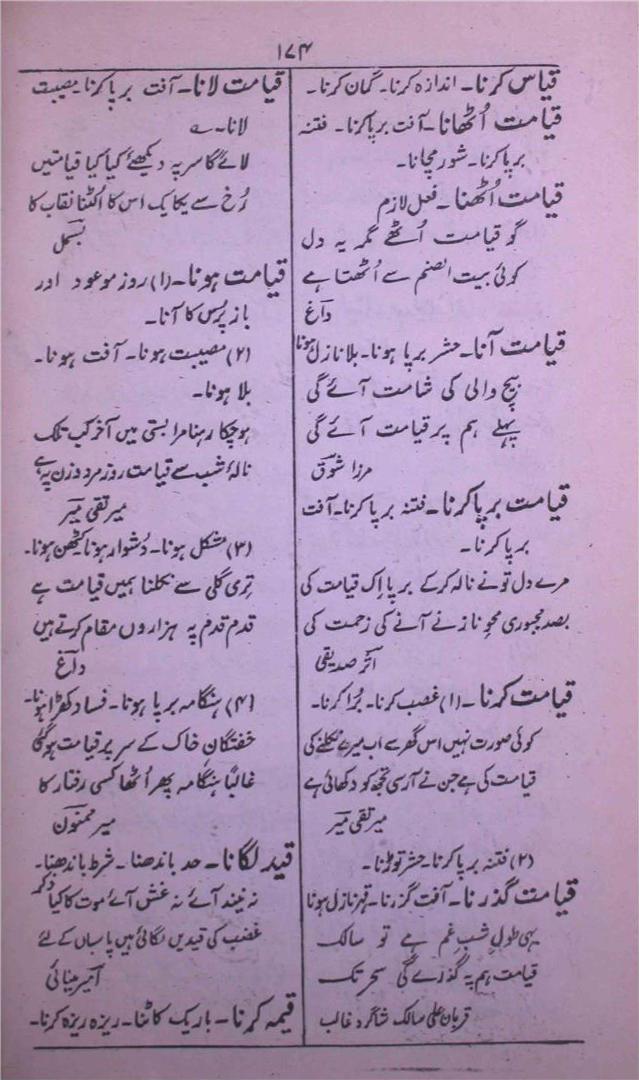 ۱۷۴
قیاس کرنا۔ اندازہ کرنا۔ گمان کرنا۔
قیامت اُٹھانا۔ آفت برپا کرنا۔ فتنہ
برپا کرنا۔ شور مچانا۔
قیامت اُٹھنا۔ فعل لازم
گو قیامت اُٹھے مگر یہ دل
کوئی بیت الصنم سے اُٹھتا ہے
داغ
قیامت آنا۔ حشر برپا ہونا۔ بلا نازل ہونا
بیچ والی کی شامت آئے گی
پہلے ہم پر قیامت آئے گی
مرزا شوق
قیامت برپا کرنا۔ فتنہ برپا کرنا۔ آفت
برپا کرنا۔
مرے دل تو نے نالہ کر کے برپا اِک قیامت کی
بصد مجبوری محوِ ناز نے آنے کی زحمت کی
اثر صدیقی
قیامت کرنا۔ (۱) غضب کرنا۔ بُرا کرنا۔
کوئی صورت نہیں اس گھر سے اب میرے نکلنے کی
قیامت کی ہے جن نے آرسی تجھ کو دکھائی ہے
میر تقی میر
(۲) فتنہ برپا کرنا۔ حشر توڑنا۔
قیامت گذرنا۔ آفت گزرنا۔ قہر نازل ہونا
یہی طولِ شبِ غم ہے تو سالک
قیامت ہم پہ گذرے گی سحر تک
قربان علی سالک شاگرد غالب
قیامت لانا۔ آفت برپا کرنا۔ مصیبت
لانا۔ ؎
لائے گا سر پہ دیکھئے کیا کیا قیامتیں
رُخ سے یکایک اس کا اُلٹنا نقاب کا
بسمل
قیامت ہونا۔ (۱) روز موعود اور
باز پُرس کا آنا۔
(۲) مصیبت ہونا۔ آفت ہونا۔
بلا ہونا۔
ہو چکا رہنا مرا بستی میں آخر کب تلک
نالۂ شب سے قیامت روز مرد و زن پہ ہے
میر تقی میر
(۳) مشکل ہونا۔ دُشوار ہونا کٹھن ہونا۔
تری گلی سے نکلنا ہمیں قیامت ہے
قدم قدم پہ ہزاروں مقام کرتے ہیں
داغ
(۴) ہنگامہ برپا ہونا۔ فساد کھڑا ہونا۔
خفتگانِ خاک کے سر پر قیامت ہو گئی
غالباً ہنگامہ پھر اُٹھا کسی رفتار کا
میر ممنون
قید لگانا۔ حد باندھنا۔ شرط باندھنا۔
نہ نیند آئے نہ غش آئے موت کا کیا ذکر
غضب کی قیدیں لگائی ہیں پاسباں کے لئے
امیر مینائی
قیمہ کرنا۔ باریک کاٹنا۔ ریزہ ریزہ کرنا۔